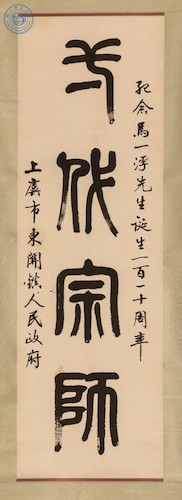 紀念馬一浮先生诞生一百一十周年
一代宗師
上虞市東關鎮人民政府